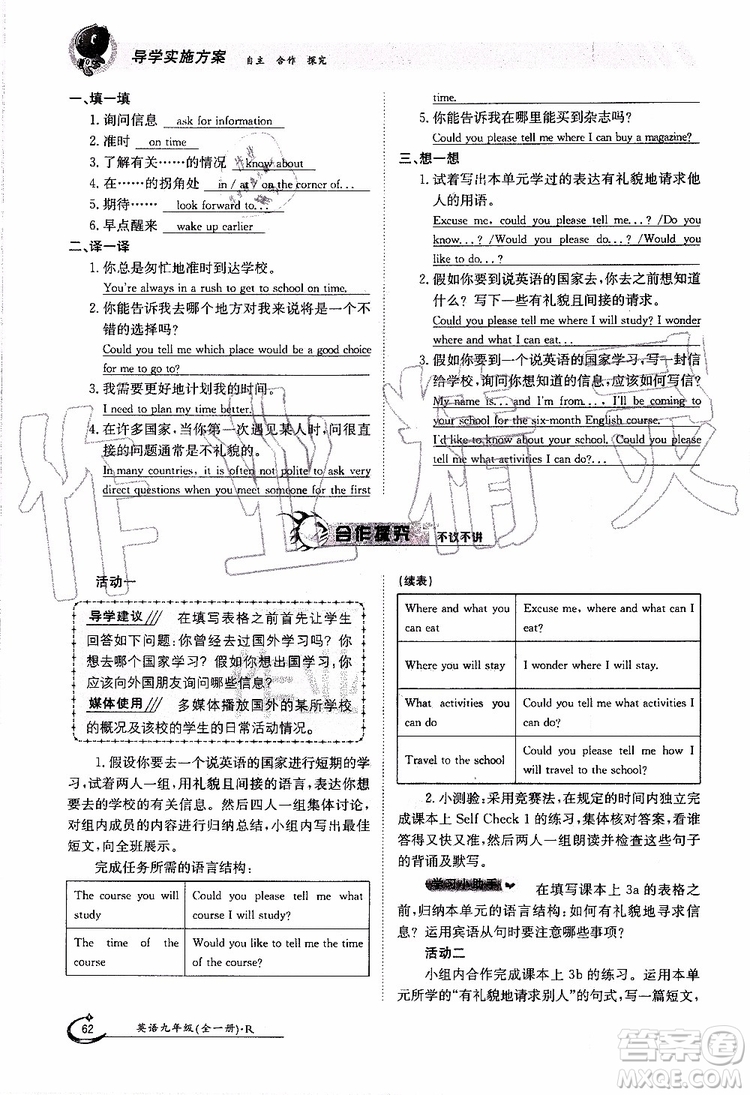 导学实施方案 自主 合作 探究
一、填一填
1. 询问信息 ask for information
2. 准时 on time
3. 了解有关……的情况 know about
4. 在……的拐角处 in / at / on the corner of...
5. 期待…… look forward to...
6. 早点醒来 wake up carlier
二、译一译
1. 你总是匆忙地准时到达学校。
You're always in a rush to get to school on time.
2. 你能告诉我去哪个地方对我来说是一个不
错的选择吗?
Could you tell me which place would be a good choice
for me to go to?
3. 我需要更好地计划我的时间。
I need to plan my time better.
4. 在许多国家,当你第一次遇见某人时,问很直
接的问题通常是不礼貌的。
In many countries, it is often not polite to ask very
direct questions when you meet someone for the first
time.
5. 你能告诉我在哪里能买到杂志吗?
Could you please tell me where I can buy a magazine?
三、想一想
1. 试着写出本单元学过的表达有礼貌地请求他
人的用语。
Excuse me, could you please tell me...? /Do you
know...? /Would you please do...? /Would you
like to do...?
2. 假如你要到说英语的国家去,你想事先知道
什么? 写下一些有礼貌且间接的请求。
Could you please tell me where I will study? I wonder
where I can eat...
3. 假如你要到一个说英语的国家学习,写一封信
给学校,询问你想知道的信息,应该如何写信?
My name is... and I'm from.... I'll be coming to
your school for the six-month English course.
I'd like to know about your school. Could you please
tell me what activities I can do...
合作探究 不议不讲
活动一
导学建议 在填写表格之前首先让学生
回答如下问题:你曾经去过国外学习吗? 你
想去哪个国家学习? 假如你出国学习,你
应该向外国朋友询问哪些信息?
媒体使用 多媒体播放国外的某所学校
的概况及该校的学生的日常活动情况。
1. 假设你要去一个说英语的国家进行短期的学
习,试着两人一组,用礼貌且间接的语言,表达你想
要去的学校的有关信息。然后四人一组集体讨论,
对组内成员的内容进行归纳总结,小组内写出最佳
短文,向全班展示。
完成任务所需的语言结构:
The course you will study | Could you please tell me what course I will study?
The time of the course | Would you like to tell me the time of the course?
(续表)
Where and what you can eat | Excuse me, where and what can I eat?
Where you will stay | I wonder where I will stay.
What activities you can do | Could you tell me what activities I can do?
Travel to the school | Could you please tell me how I can get to the school?
2. 小测验:采用竞赛法,在规定的时间内独立完
成课本上 Self Check 1 的练习,集体核对答案,看谁
答得又快又准。然后两人一组朗读并检查这些句子
的背诵及默写。
学习小助手 在填写课本上 3a 的表格之
前,归纳本单元的语言结构:如何有礼貌地寻求信
息? 运用宾语从句时要注意哪些事项?
活动二
小组内合作完成课本上 3b 的练习。运用本单
元所学的“有礼貌地请求别人”的句式,写一篇短文,
62 英语九年级(全一册)·R
作业精灵
作业
答案圈
MXQE.COM